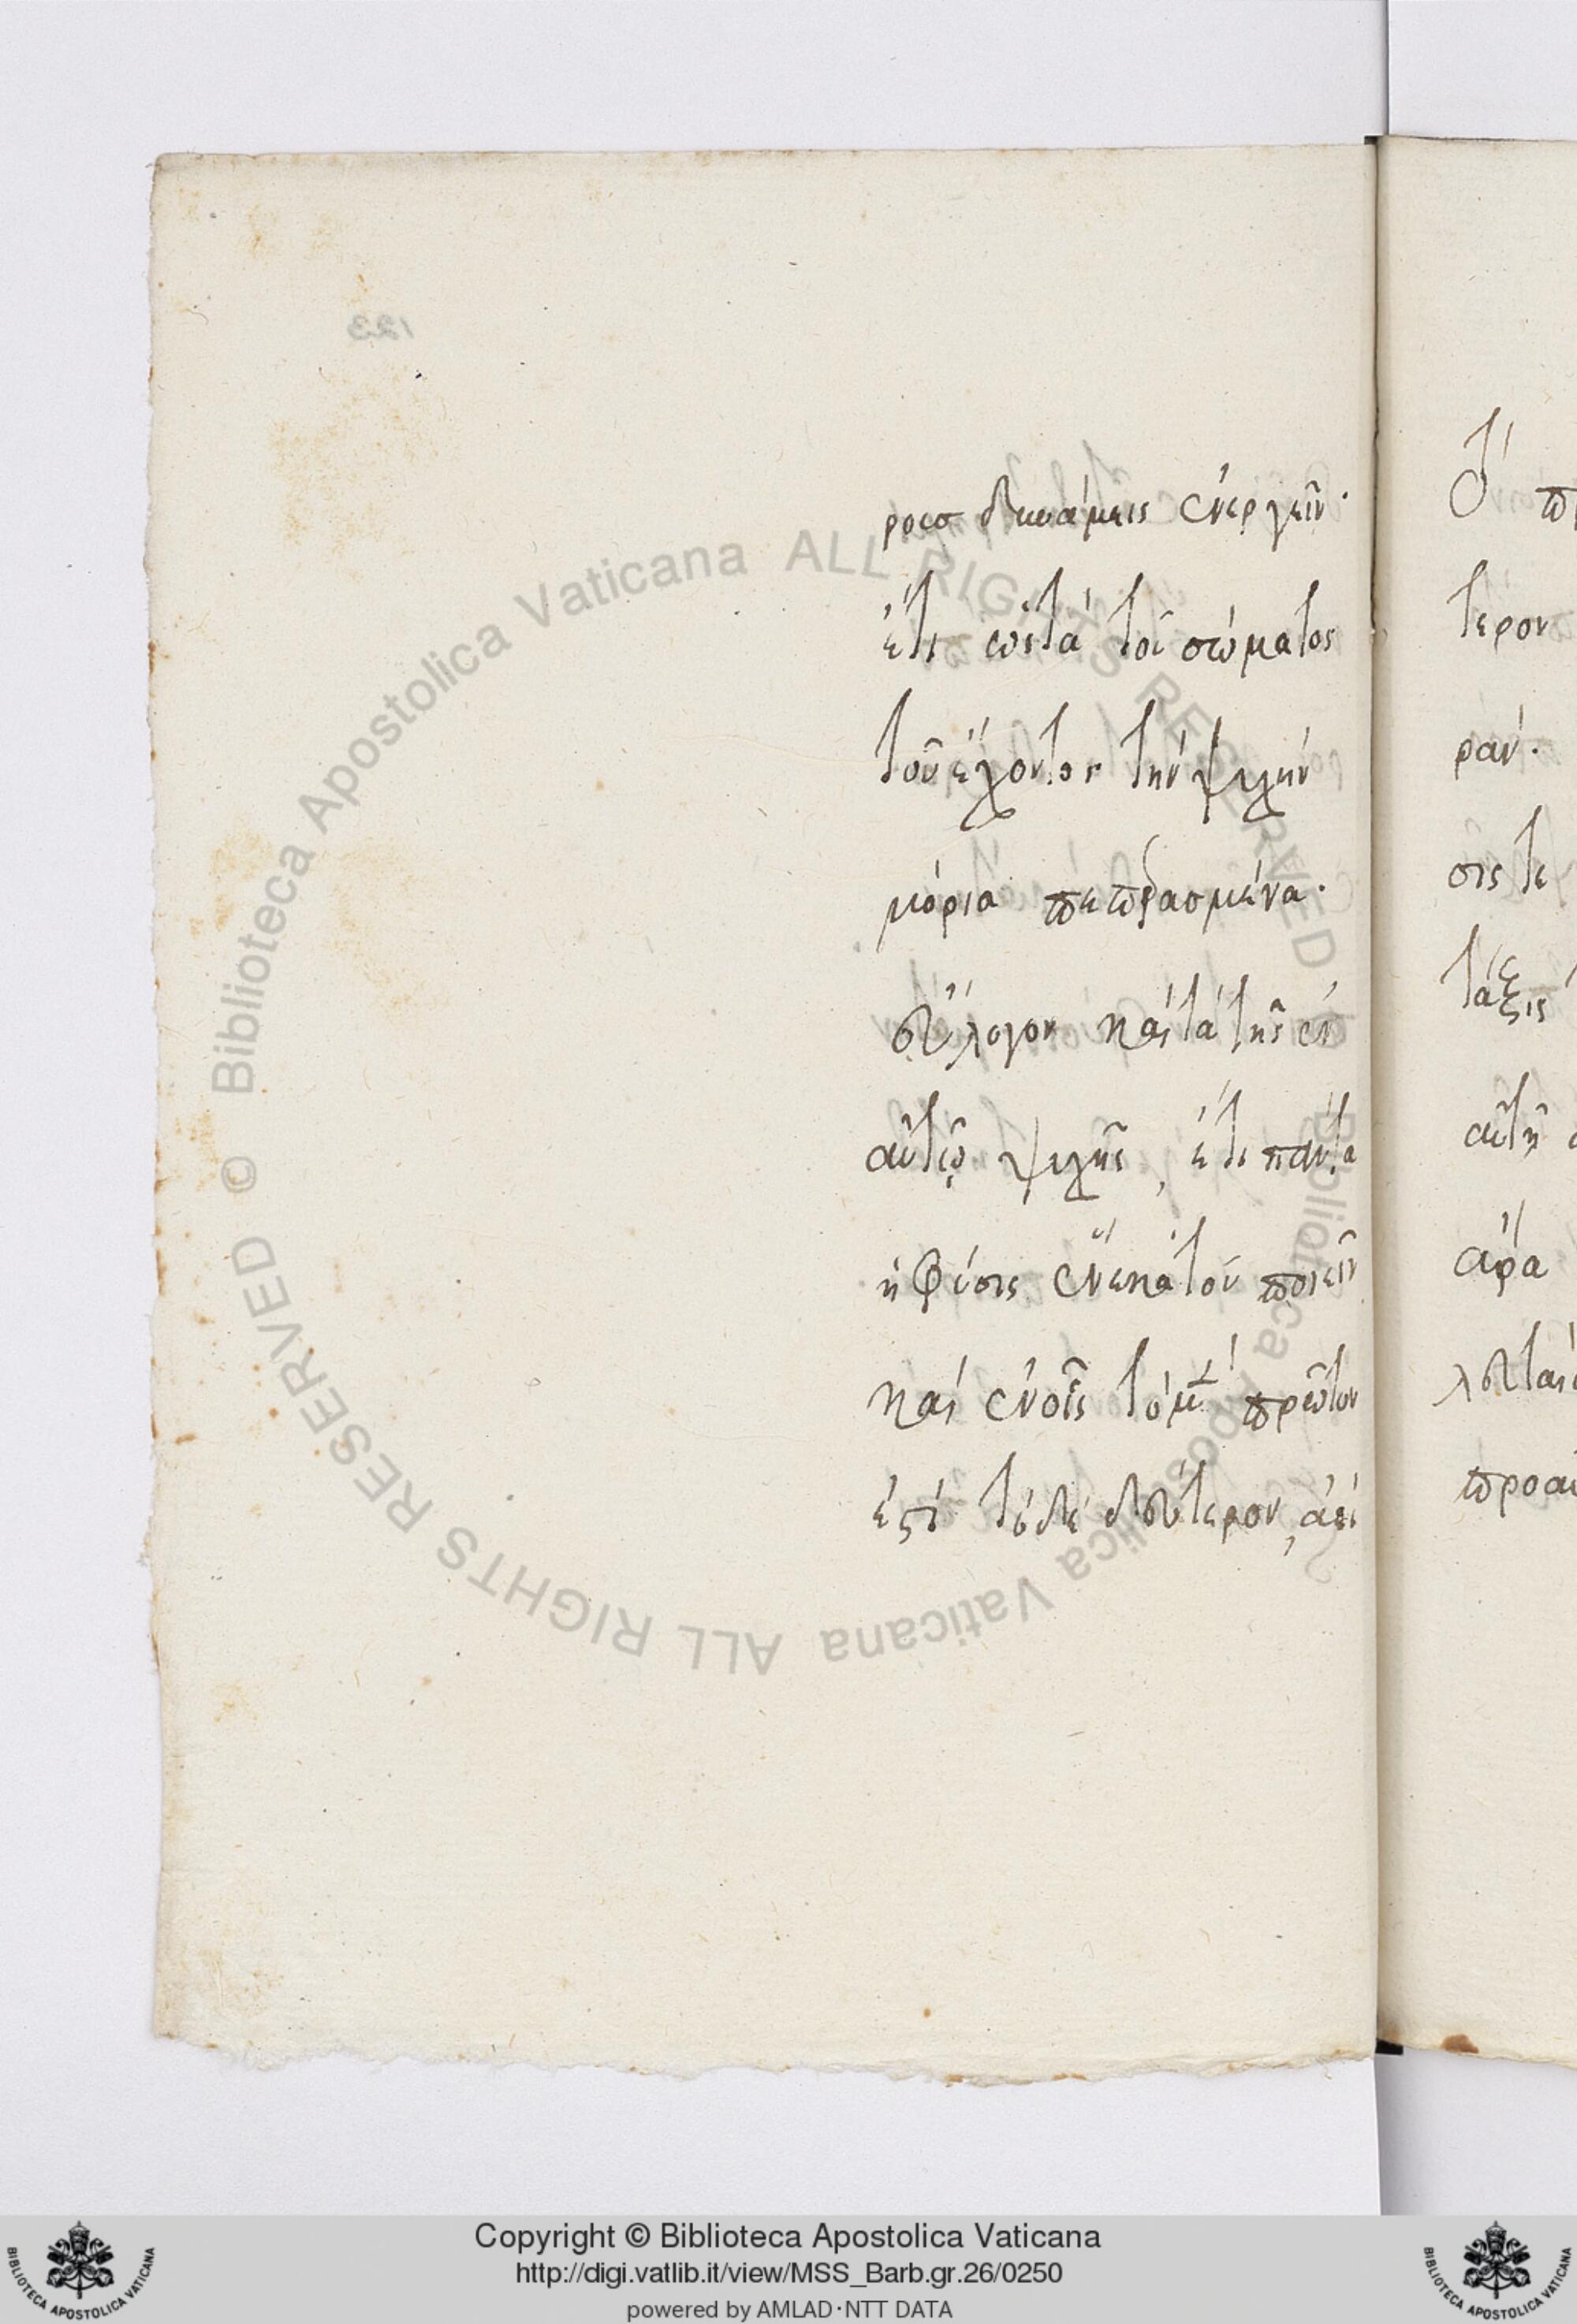 ροισ δυνάμεις ἐνεργεῖν·
ἔτι ὡς τὰ τοῦ σώματος
τοῦ ἔχοντος τὴν ψυχὴν
μόρια πεπερασμένα·
εὔλογον καὶ τὰ τῆς ἐν
αὐτῷ ψυχῆς, ἔτι πάντα
ἡ φύσις ἕνεκα τοῦ ποιεῖ
καὶ ἐν οἷς τὸ μὲν πρῶτον
ἐστὶ τὸ δὲ δεύτερον, ἀεὶ
τερον
ράν.
σις τε
τάξις
αὐτὴ
ἄρα
123
© Biblioteca Apostolica Vaticana ALL RIGHTS RESERVED
© Biblioteca Apostolica Vaticana ALL RIGHTS RESERVED
Copyright © Biblioteca Apostolica Vaticana
http://digi.vatlib.it/view/MSS_Barb.gr.26/0250
powered by AMLAD·NTT DATA
BIBLIOTECA APOSTOLICA VATICANA
BIBLIOTECA APOSTOLICA VATICANA